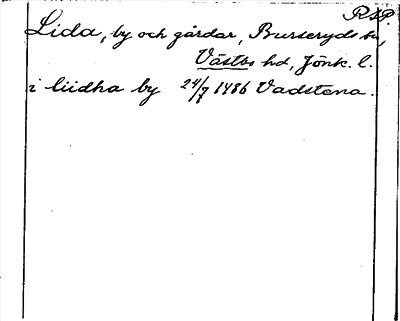 R.S.P.
Lida, by och gårdar, Burseryds sn,
Västbo hd, Jönk. l.
i liidha by 24/7 1486 Vadstena.